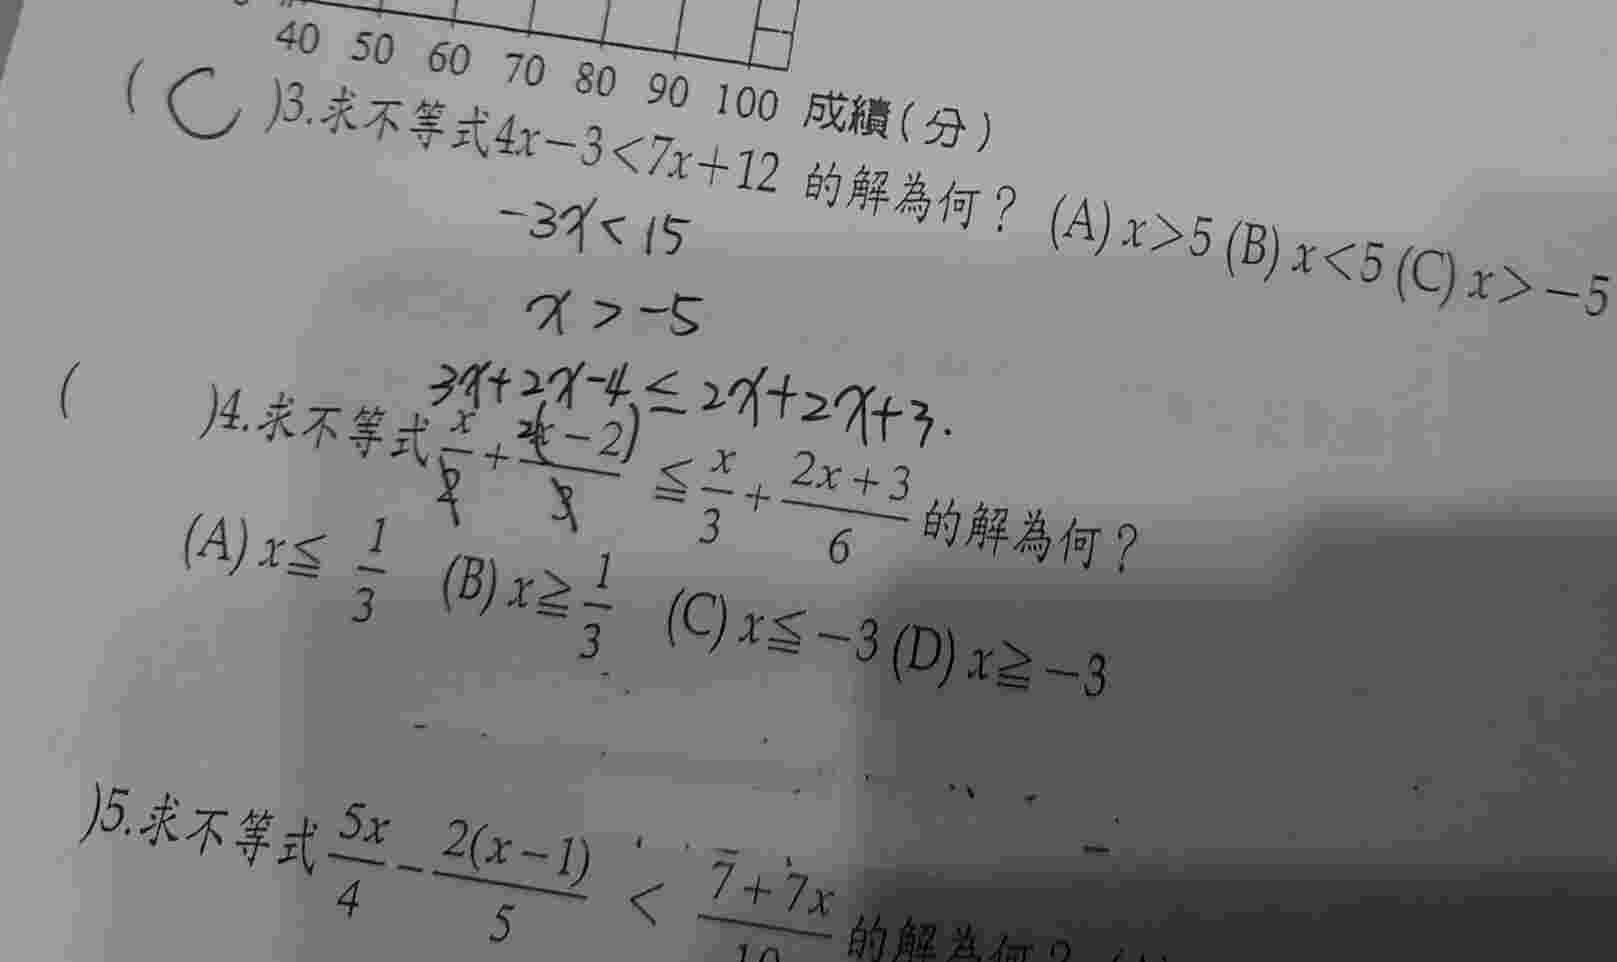 40 50 60 70 80 90 100 成績(分)
( C )3.求不等式4x−3<7x+12 的解為何? (A) x>5 (B) x<5 (C) x>−5
-3x < 15
x > -5
3x+2x-4 ≤ 2x+2x+3.
( )4.求不等式 x/2 + (x−2)/3 ≦ x/3 + (2x+3)/6 的解為何?
(A) x≦ 1/3 (B) x≧ 1/3 (C) x≦−3 (D) x≧−3
)5.求不等式 5x/4 − 2(x−1)/5 < (7+7x)/10 的解為何?